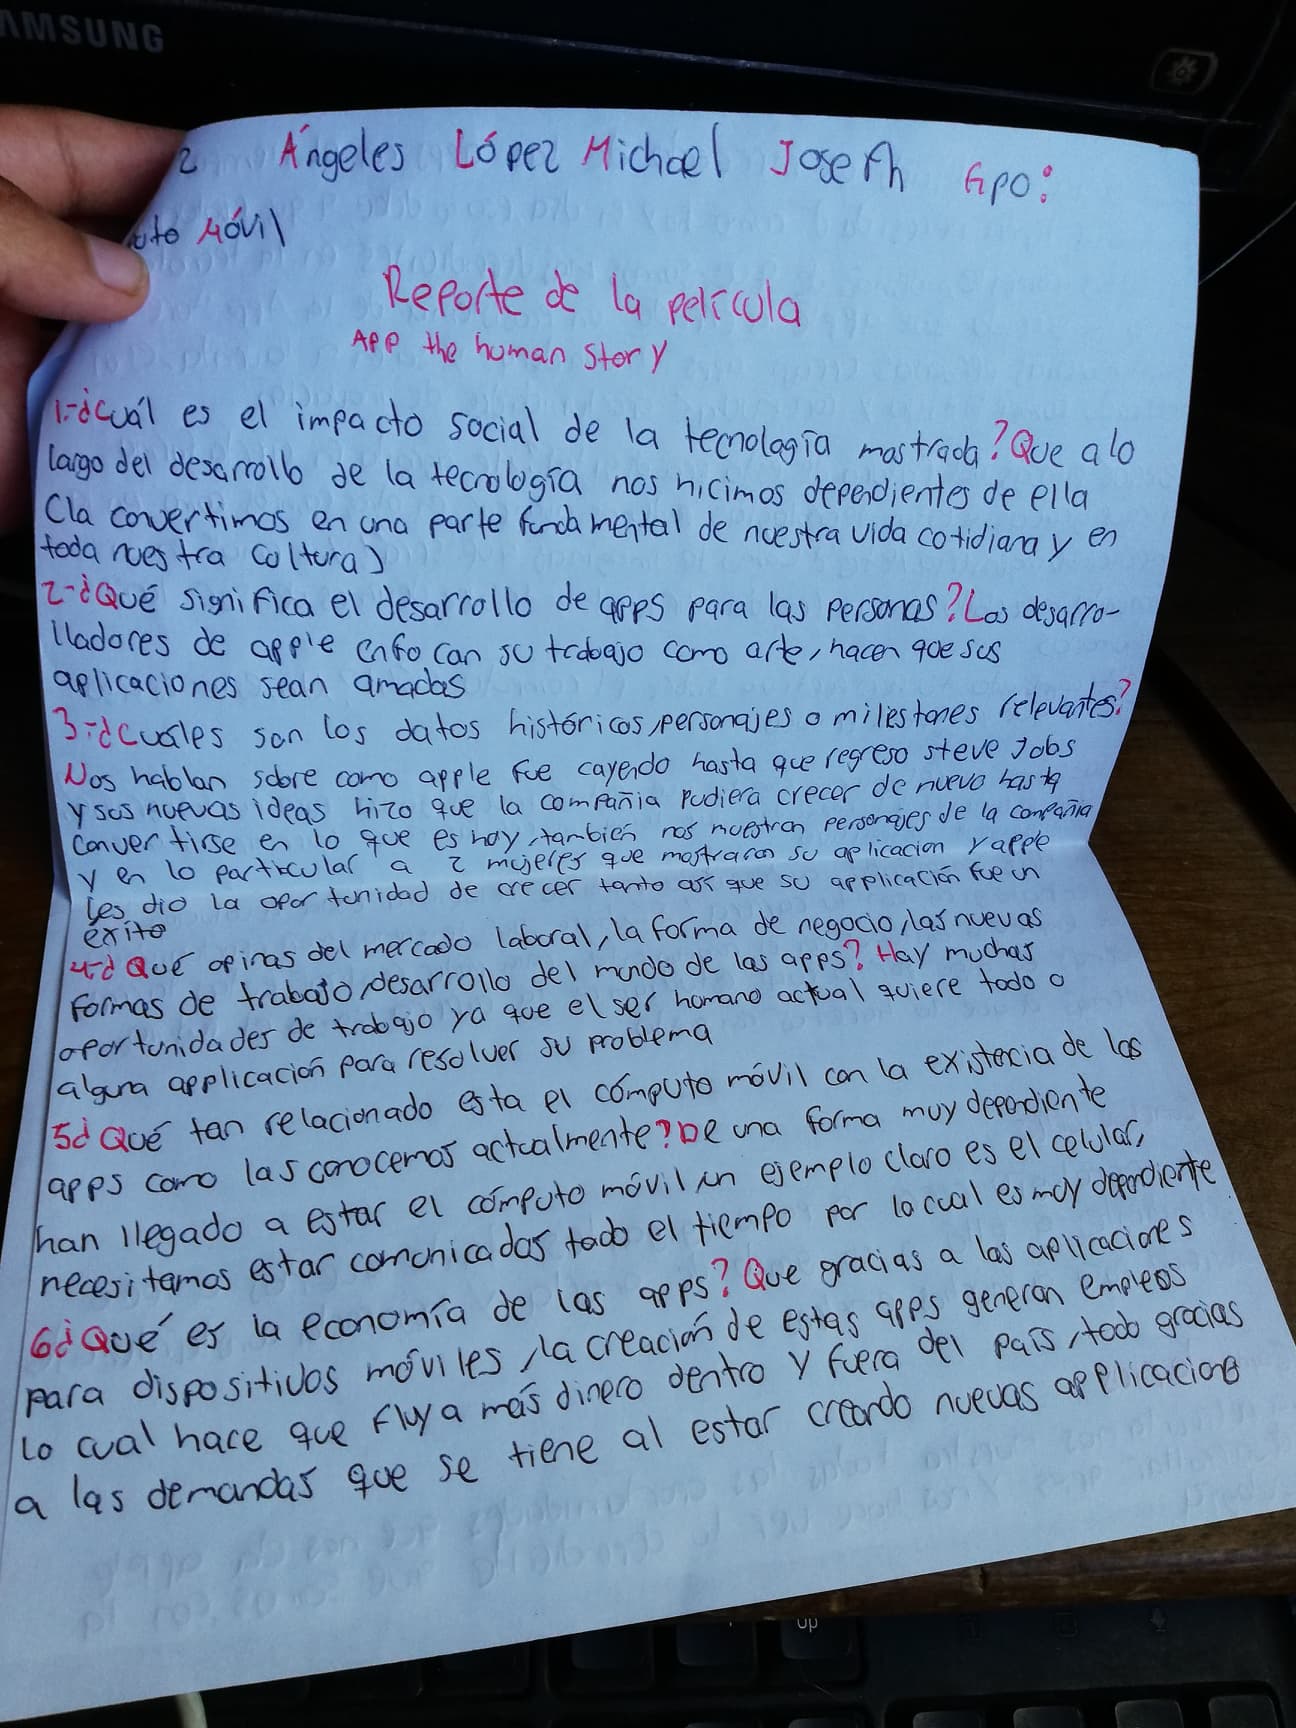 SAMSUNG
2 Ángeles López Michael Joseph Gpo:
uto Móvil
Reporte de la película
App the human story
1.-¿Cuál es el impacto social de la tecnología mostrada? Que a lo
largo del desarrollo de la tecnología nos hicimos dependientes de ella
(la convertimos en una parte fundamental de nuestra vida cotidiana y en
toda nuestra cultura)
2-¿Qué significa el desarrollo de apps para las personas? Los desarro-
lladores de apple enfocan su trabajo como arte, hacen que sus
aplicaciones sean amadas
3-¿Cuáles son los datos históricos, personajes o milestones relevantes?
Nos hablan sobre como apple fue cayendo hasta que regreso steve Jobs
y sus nuevas ideas hizo que la compañia pudiera crecer de nuevo hasta
convertirse en lo que es hoy, también nos muestran personajes de la compañia
y en lo particular a 2 mujeres que mostraron su aplicacion y apple
les dio la oportunidad de crecer tanto así que su applicación fue un
éxito
4-¿Qué opinas del mercado laboral, la forma de negocio, las nuevas
formas de trabajo, desarrollo del mundo de las apps? Hay muchas
oportunidades de trabajo ya que el ser humano actual quiere todo o
alguna applicación para resolver su problema
5¿Qué tan relacionado esta el cómputo móvil con la existecia de las
apps como las conocemos actualmente? De una forma muy dependiente
han llegado a estar el cómputo móvil un ejemplo claro es el celular,
necesitamos estar comunicados todo el tiempo por lo cual es muy dependiente
6¿Qué es la economía de las apps? Que gracias a las aplicaciones
para dispositivos móviles, la creación de estas apps generan empleos
lo cual hace que fluya más dinero dentro y fuera del país, todo gracias
a las demandas que se tiene al estar creando nuevas applicacions
up